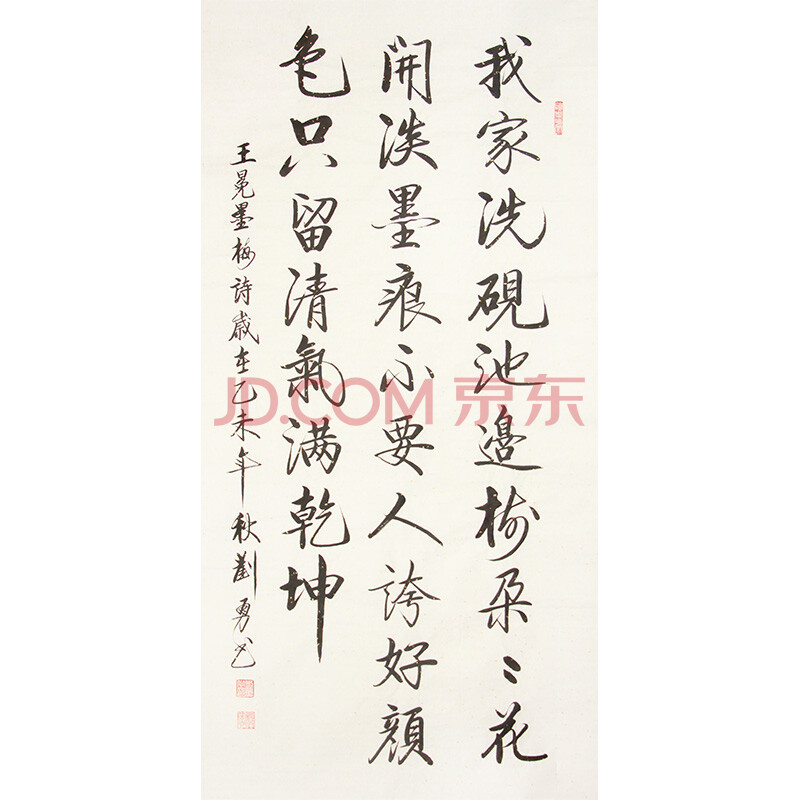 我家洗硯池邊樹朵〻花
開淡墨痕不要人誇好顔
色只留清氣满乾坤
王冕墨梅詩歲在乙未年秋劉勇书
JD.COM 京东